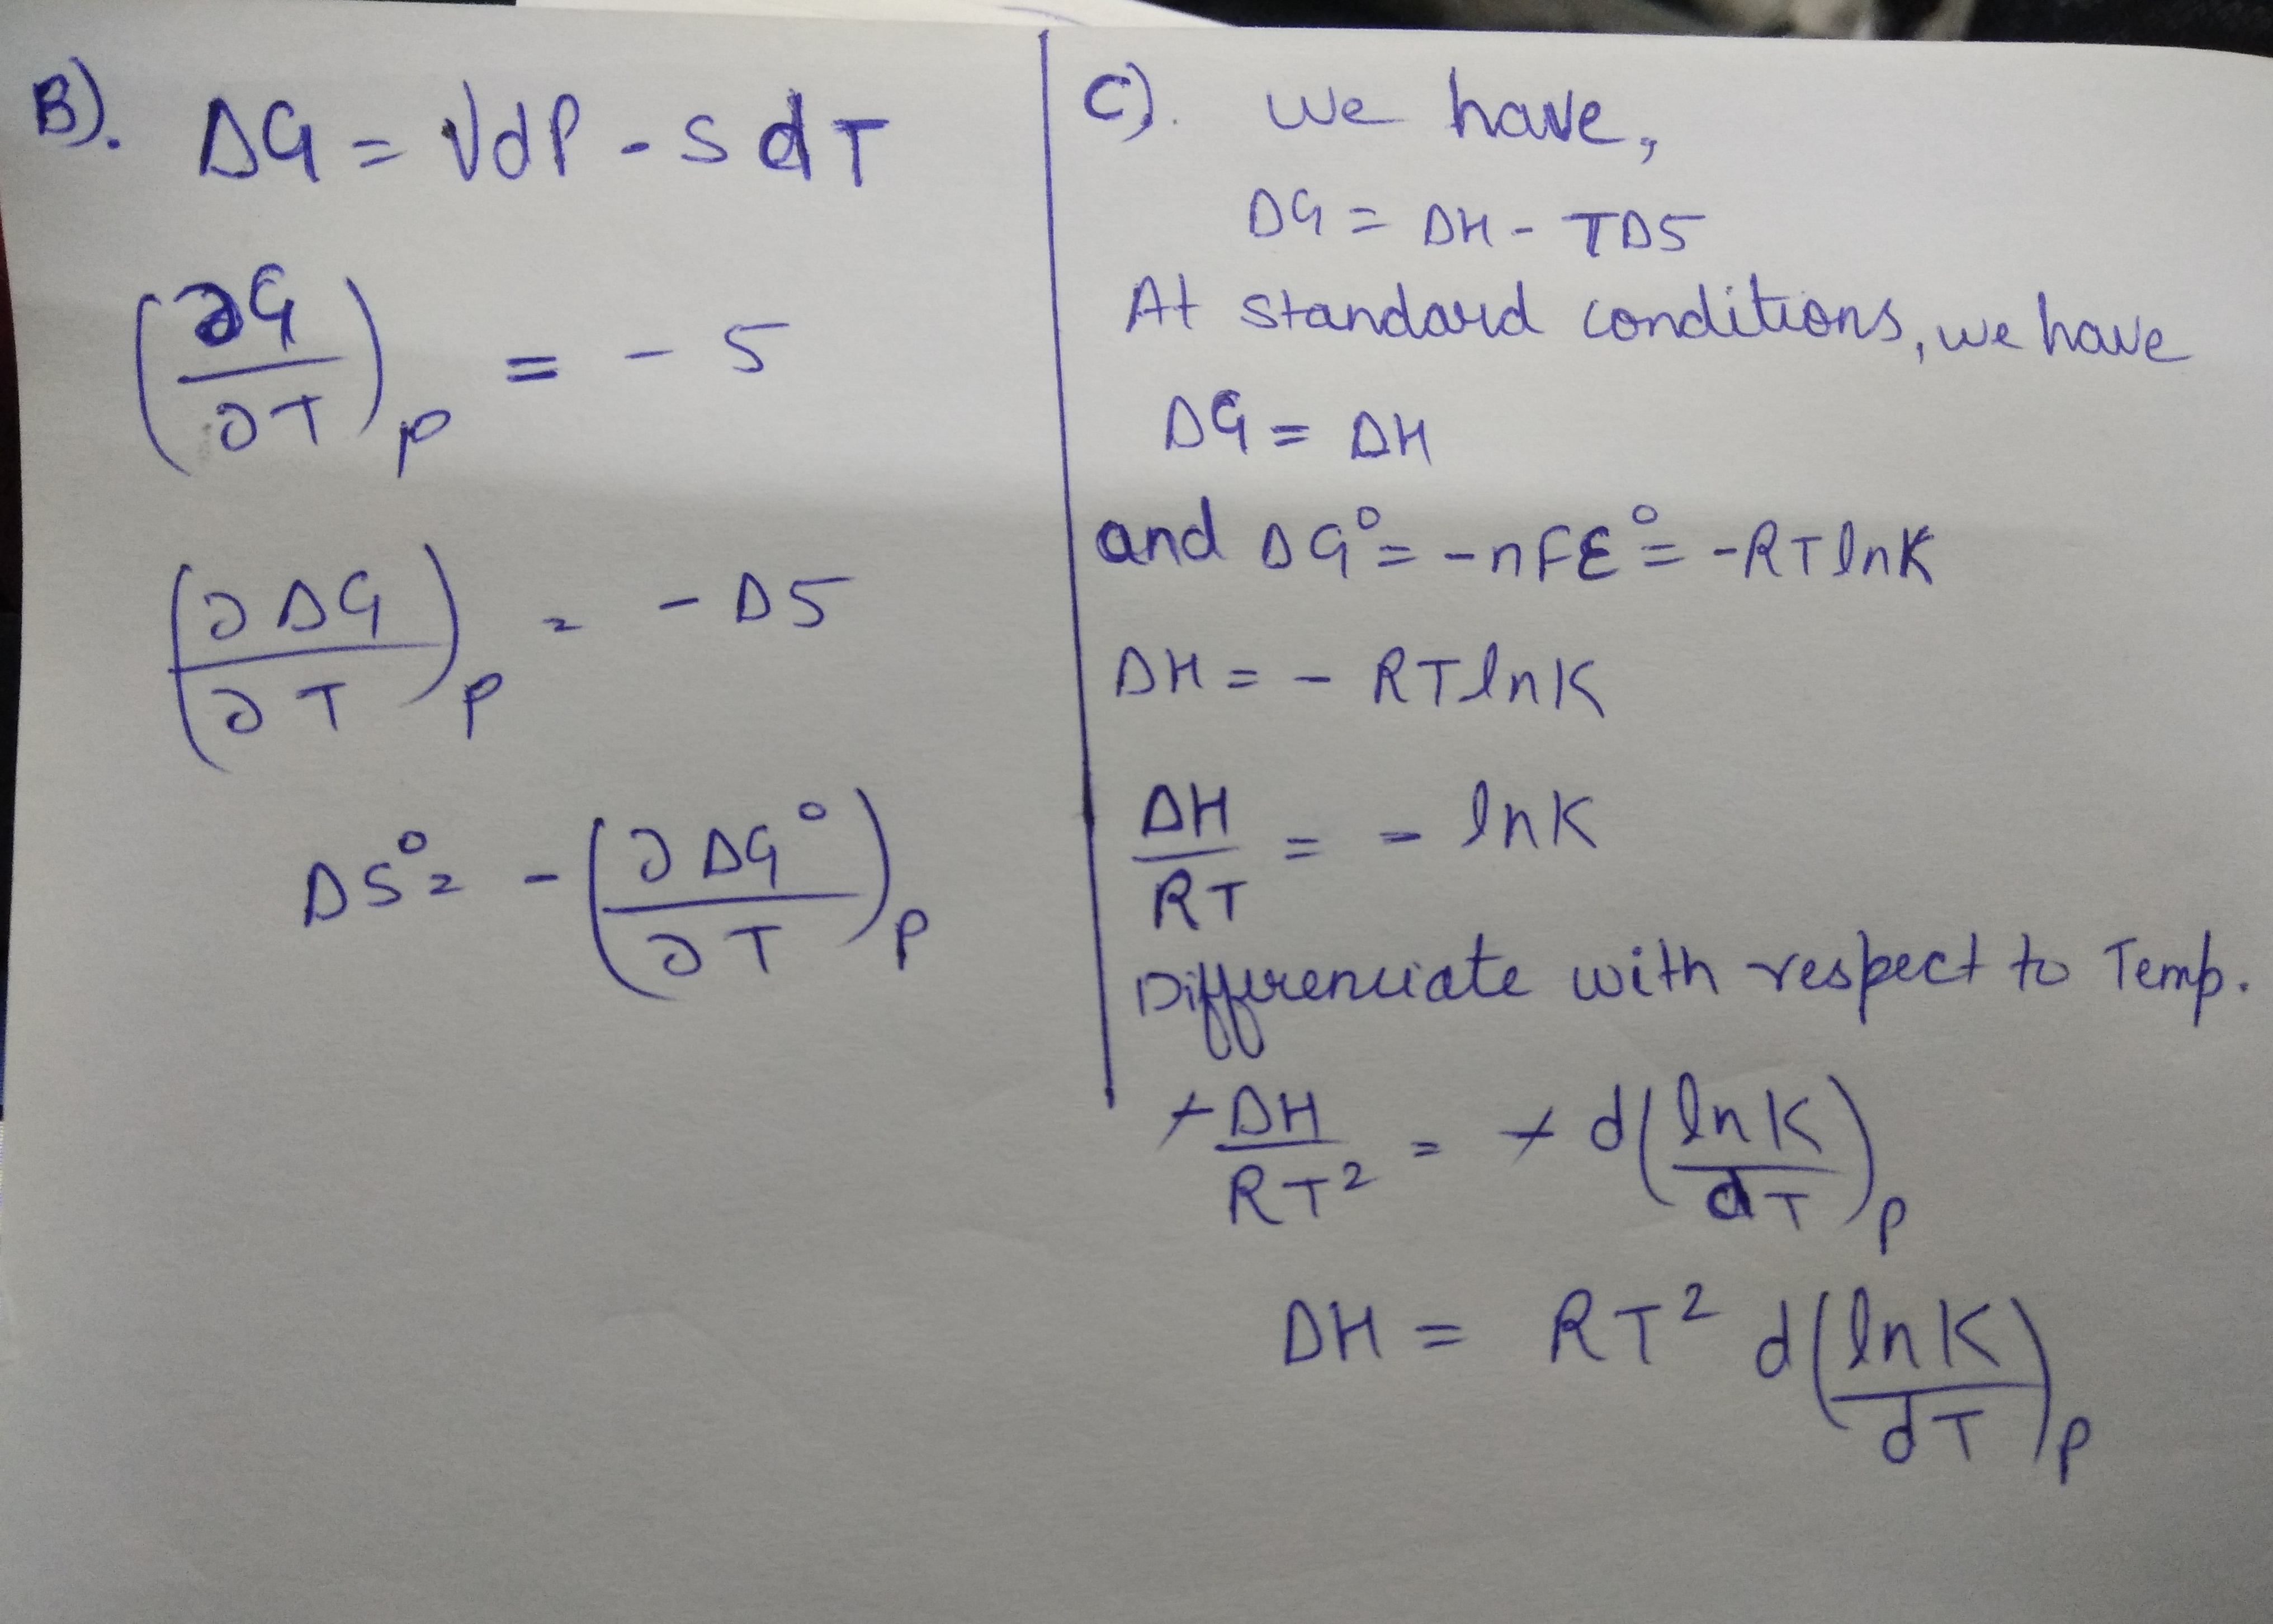 B). ΔG = VdP - SdT
(∂G/∂T)P = - S
(∂ΔG/∂T)P = - ΔS
ΔS° = -(∂ΔG°/∂T)P
C). We have,
ΔG = ΔH - TΔS
At standard conditions, we have
ΔG = ΔH
and ΔG° = -nFE° = -RTlnK
ΔH = - RTlnK
ΔH/RT = - lnK
Differenciate with respect to Temp.
+ΔH/RT² = + d(lnK/dT)P
ΔH = RT² d(lnK/dT)P